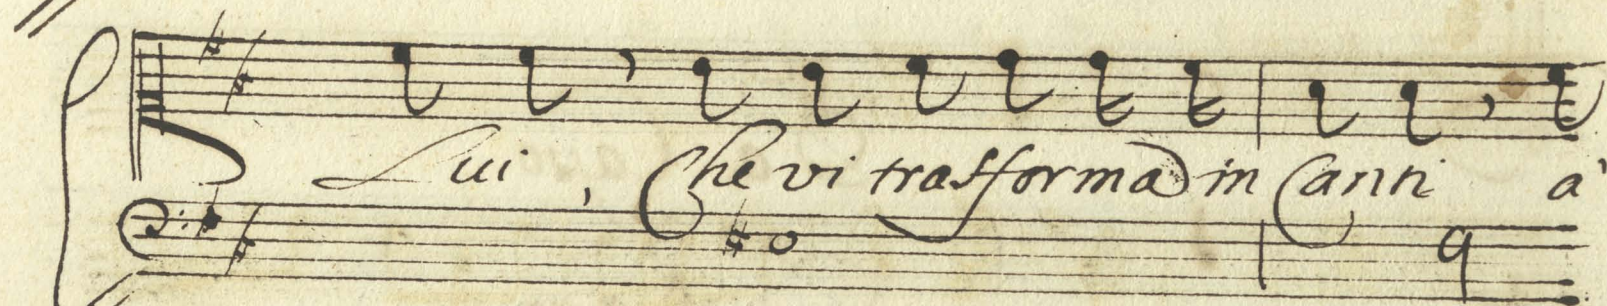 Lui, Che vi trasforma in Canti a'